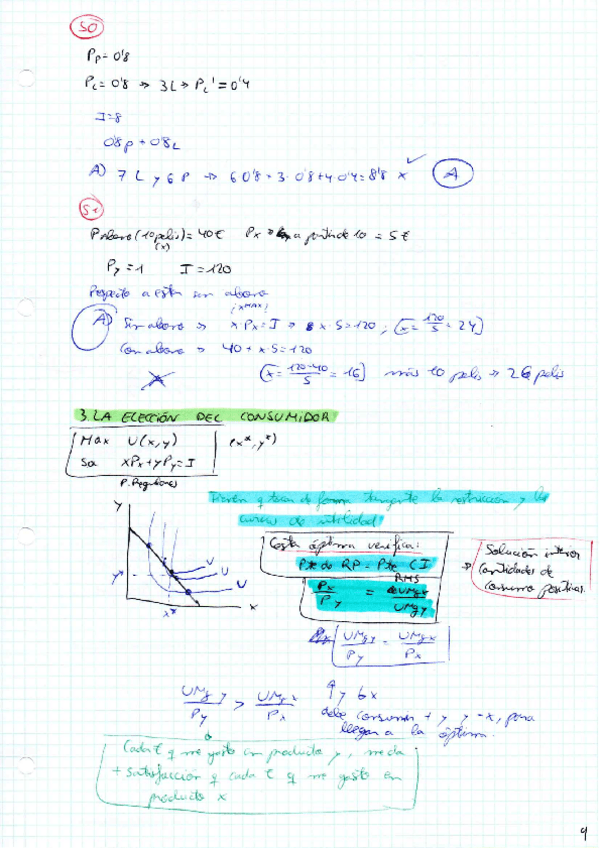 50
Pp = 0'8
PL = 0'8 → 3L → PL' = 0'4
I = 8
0'8p + 0'8L
A) 7 L y 6 P → 6 0'8 + 3 · 0'8 + 4 · 0'4 = 8'8 x A
51
P abono (10 pelis) = 40€ Px → a partir de 10 = 5€
(x)
Py = 1 I = 120
Respecto a estar sin abono
(xmax)
A) Sin abono → x Px = I → x · 5 = 120 ; (x = 120/5 = 24)
Con abono → 40 + x · 5 = 120
(x = 120-40/5 = 16) más 10 pelis → 26 pelis
3. LA ELECCIÓN DEL CONSUMIDOR
Max U(x, y) (x*, y*)
Sa xPx + yPy = I
P. Regulares
Tienen q tocar de forma tangente la restricción y la
curva de utilidad
Cesta óptima verifica:
Pte de RP = Pte CI
RMS
Px/Py = UMgx/UMgy
Solución interior
Cantidades de
consumo positivas.
UMgy/Py = UMgx/Px
y
U
U
U
y*
x*
x
UMgy/Py > UMgx/Px ↑y ↓x
debe consumir + y y - x, para
llegar a la óptima.
Cada € q me gasto en producto y, me da
+ satisfacción q cada € q me gasto en
producto x
9